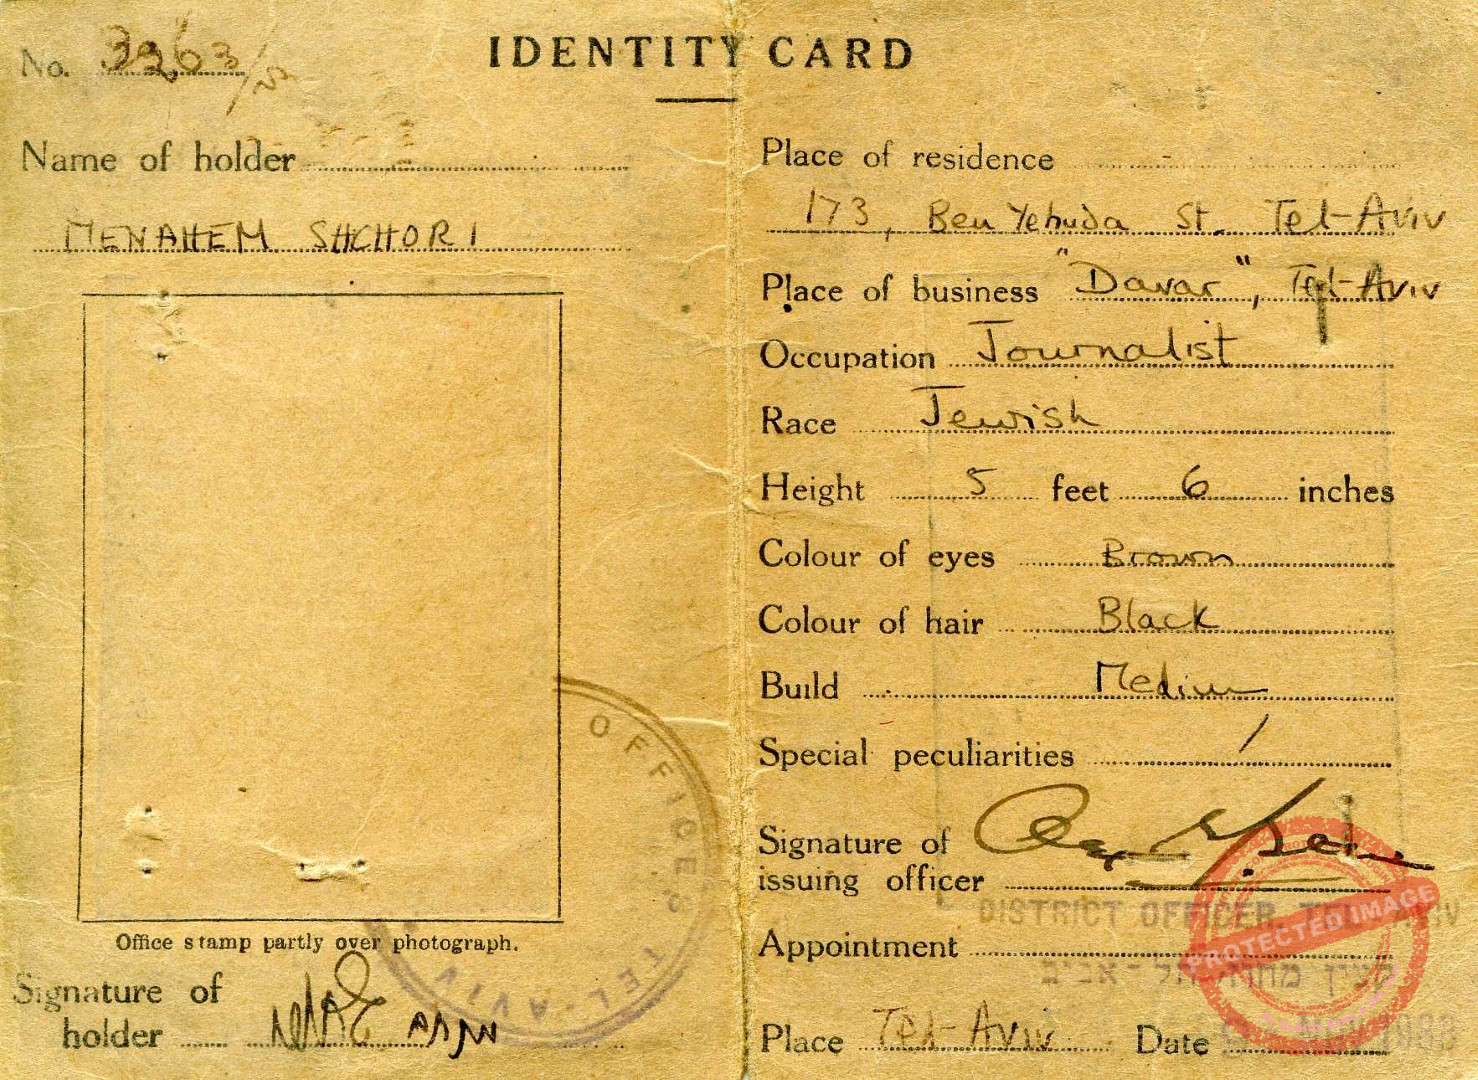 IDENTITY CARD
No. 3263/
Name of holder
MENAHEM SHCHORI
Office stamp partly over photograph.
OFFICES TEL-AVIV
Signature of
holder
Place of residence
173, Ben Yehuda St. Tel-Aviv
Place of business "Davar", Tel-Aviv
Occupation Journalist
Race Jewish
Height 5 feet 6 inches
Colour of eyes Brown
Colour of hair Black
Build Medium
Special peculiarities /
Signature of
issuing officer
DISTRICT OFFICER TEL AVIV
Appointment
קצין מחוז תל-אביב
Place Tel-Aviv Date
PROTECTED IMAGE